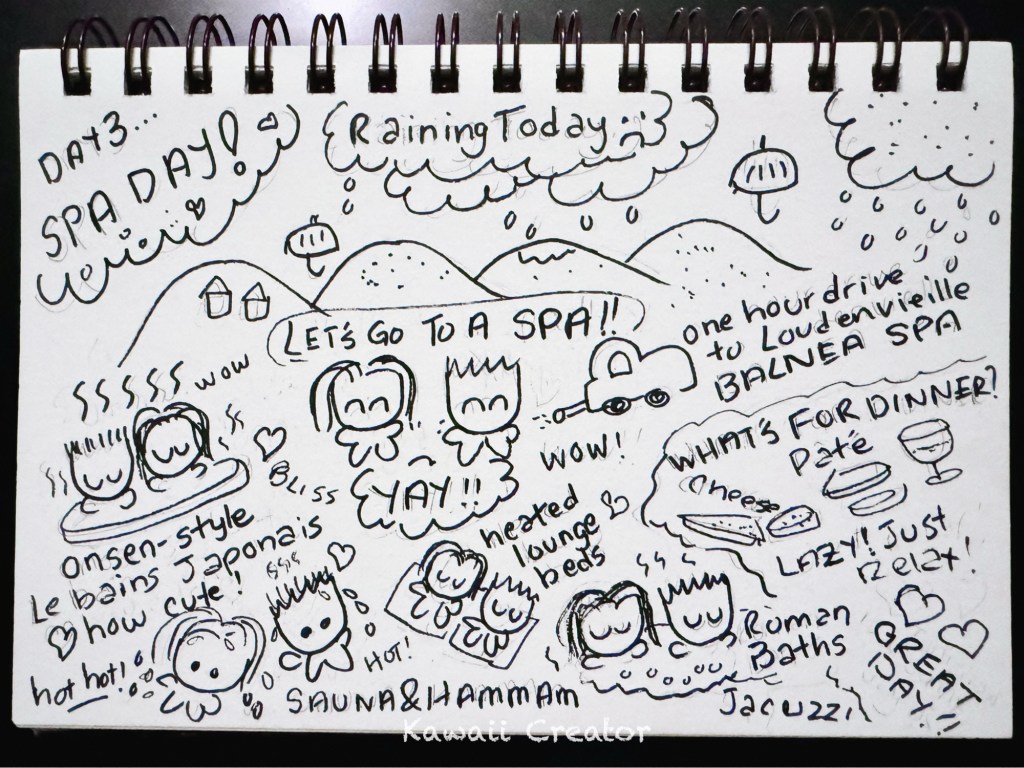 DAY 3...
SPA DAY!
Raining Today
LET'S GO TO A SPA!!
one hour drive
to Loudenvieille
BALNEA SPA
WOW
YAY!!
WOW!
BLISS
WHAT'S FOR DINNER?
Paté
Cheese
LAZY! Just
Relax!
onsen-style
Le bains Japonais
how cute!
heated
lounge
beds
hot hot!
HOT!
SAUNA & HAMMAM
Roman
Baths
Jacuzzi
GREAT
DAY!!
Kawaii Creator